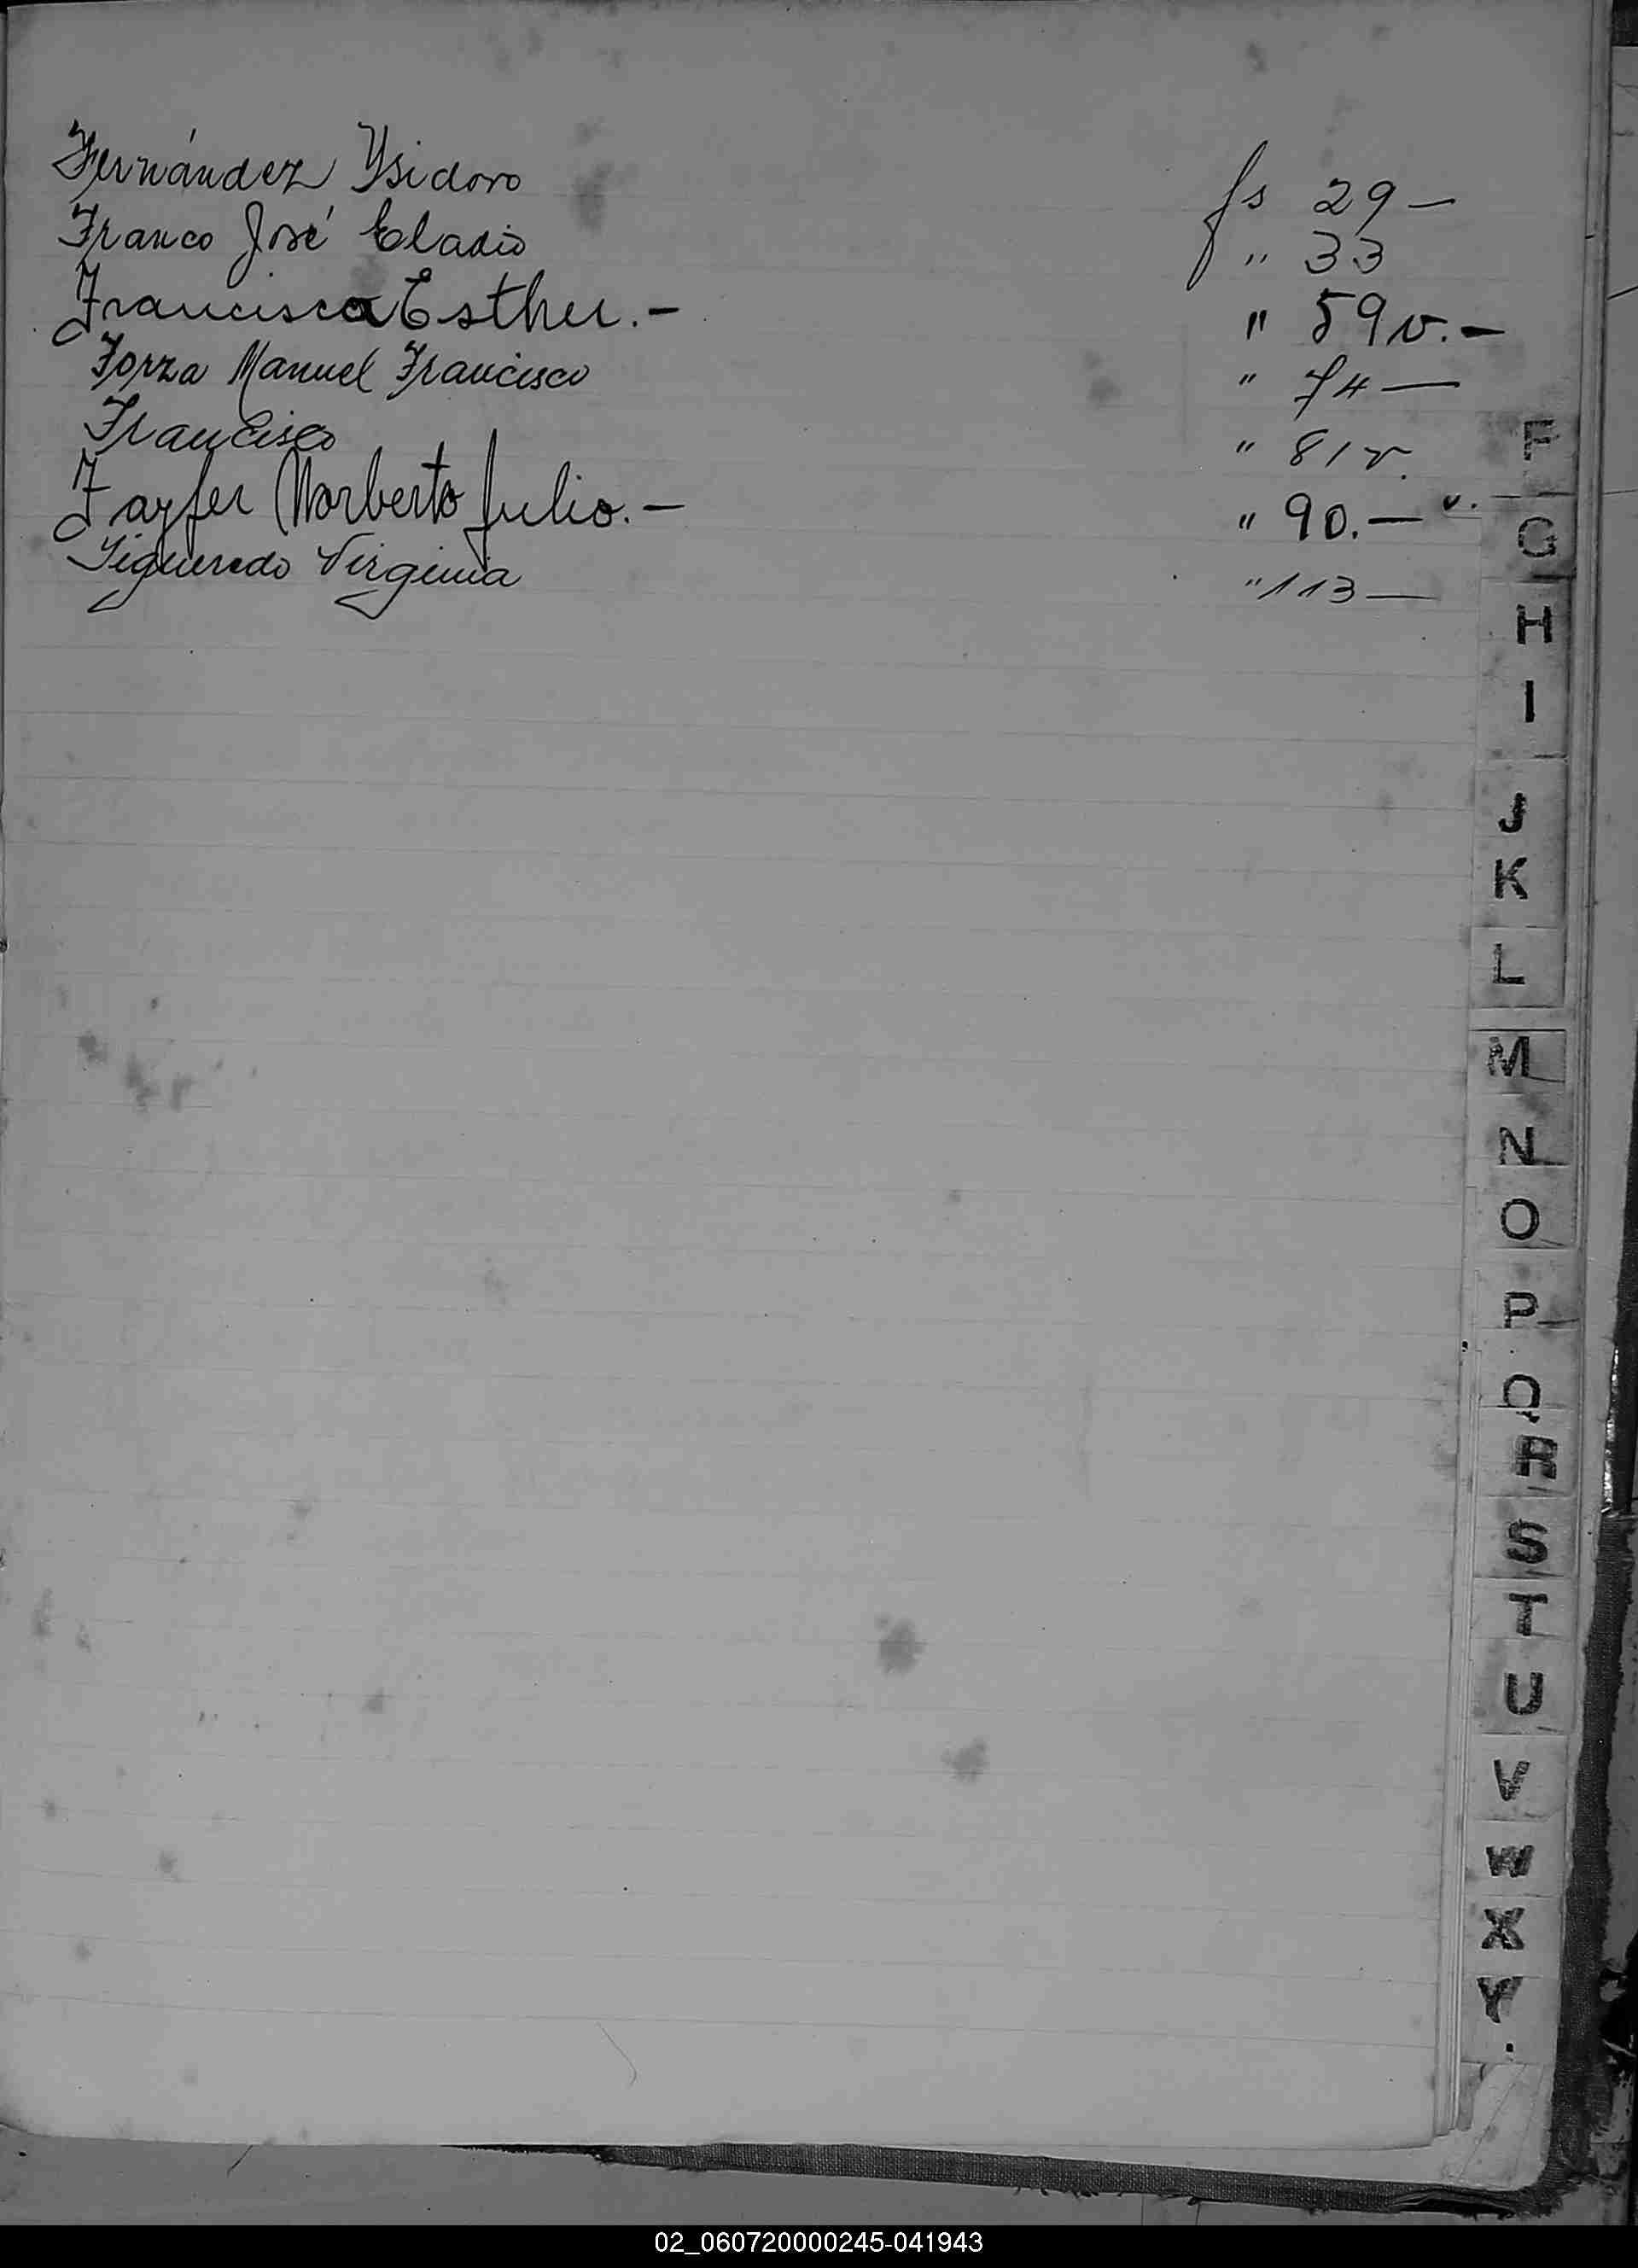 Fernández Ysidoro fs 29 —
Franco José Eladio " 33
Francisca Esther. — " 59 v. —
Forza Manuel Francisco " 74 —
Francisco " 81 v.
Fayfer Norberto Julio. — " 90. — v.
Figueredo Virginia " 113 —
F
G
H
I
J
K
L
M
N
O
P
Q
R
S
T
U
V
W
X
Y
02_060720000245-041943